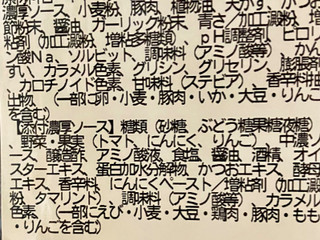 濃厚ソース、小麦粉、豚肉、植物油、天かす、かつお
節粉末、醤油、ガーリック粉末、青さ/加工澱粉、
粘剤(加工澱粉、増粘多糖類)、pH調整剤、ピロリン
酸Na、ソルビット、調味料(アミノ酸等)、かん
すい、カラメル色素、グリシン、増粘剤(加工澱粉)
、カロチノイド色素、甘味料(ステビア)、香辛料抽
出物、(一部に卵・小麦・豚肉・いか・大豆・りんご
を含む)
【添付濃厚ソース】糖類(砂糖、ぶどう糖果糖液糖)
、野菜・果実(トマト、にんにく、りんご)、中濃ソ
ース、醸造酢、アミノ酸液、食塩、醤油、酒精、オイ
スターエキス、蛋白加水分解物、かつおエキス、酵母
エキス、香辛料、にんにくペースト/増粘剤(加工澱
粉、タマリンド)、調味料(アミノ酸等)、カラメル
色素、(一部にえび・小麦・大豆・鶏肉・豚肉・もも
・りんごを含む)